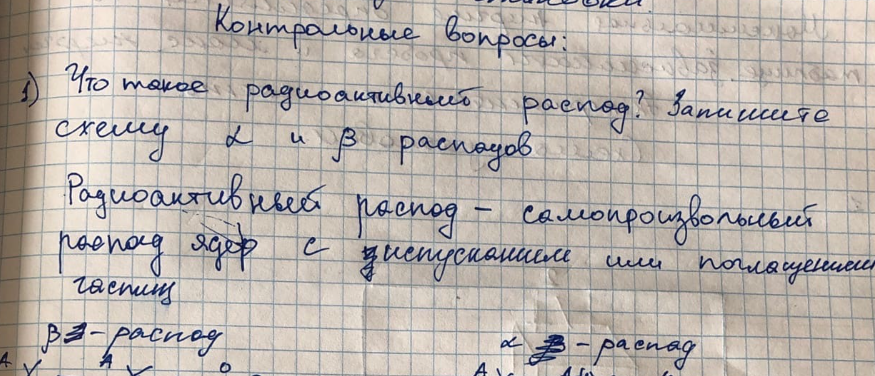 Контрольные вопросы:
1) Что такое радиоактивный распад? Запишите
схему α и β распадов
Радиоактивный распад – самопроизвольный
распад ядер с испусканием или поглащением
частиц
β – распад α – распад
A A 0 A